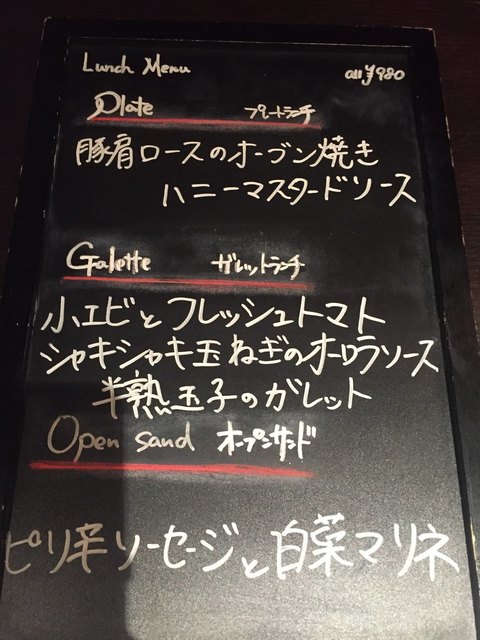 Lunch Menu all ¥980
Plate プレートランチ
豚肩ロースのオーブン焼き
ハニーマスタードソース
Galette ガレットランチ
小エビとフレッシュトマト
シャキシャキ玉ねぎのオーロラソース
半熟玉子のガレット
Open sand オープンサンド
ピリ辛ソーセージと白菜マリネ